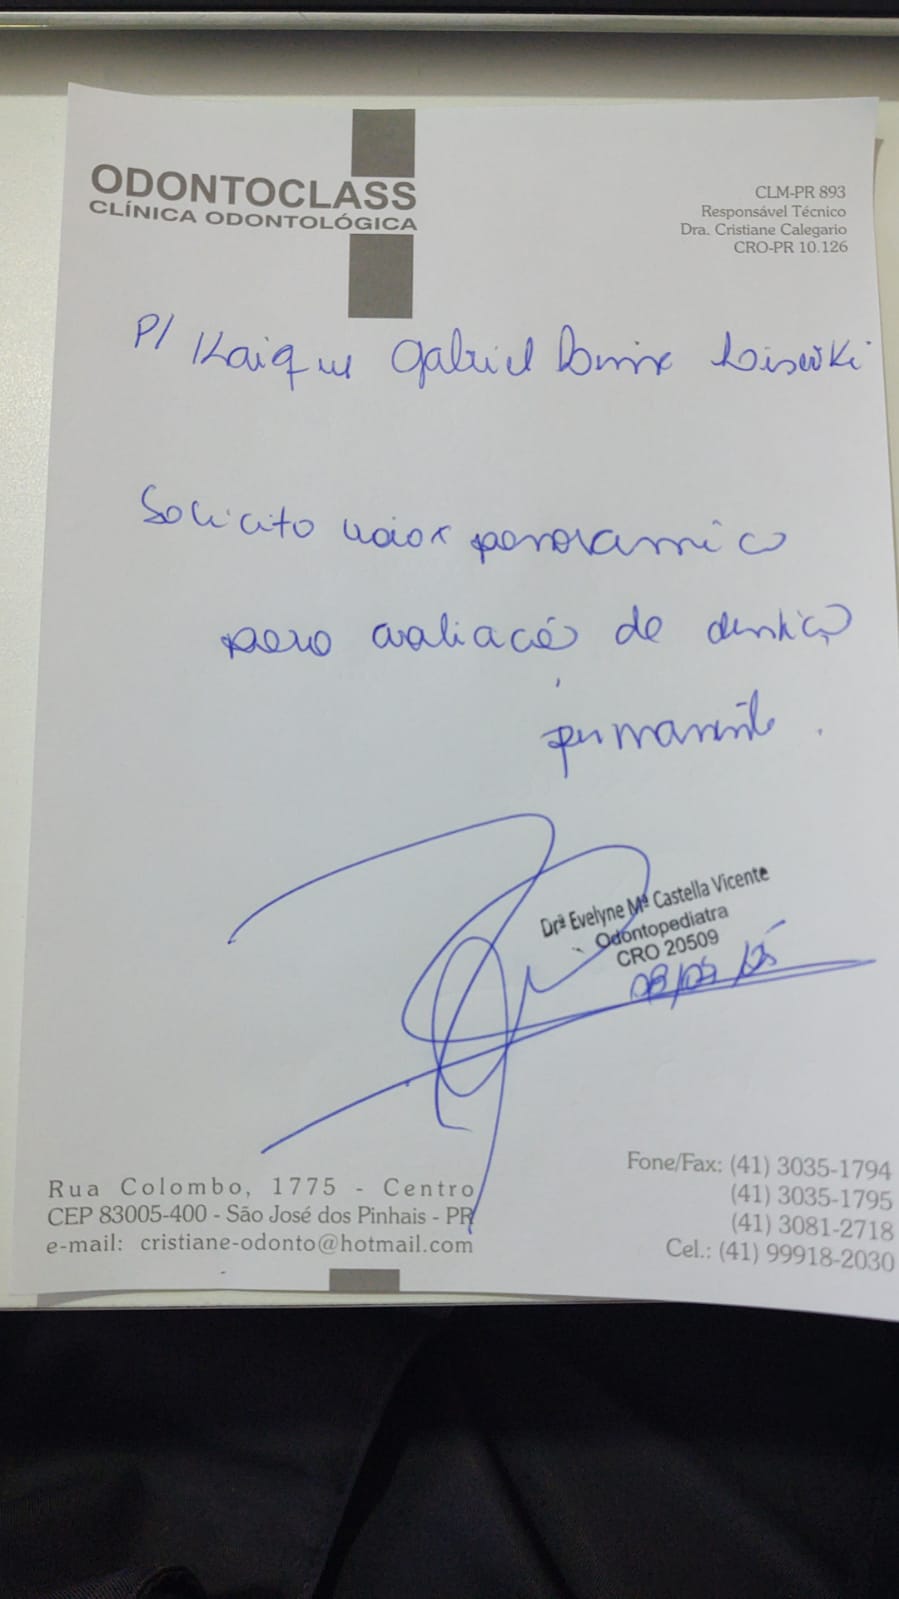 ODONTOCLASS
CLÍNICA ODONTOLÓGICA
CLM-PR 893
Responsável Técnico
Dra. Cristiane Calegario
CRO-PR 10.126
P/ Kaique Gabriel
Solicito raio x panoramico
para avaliação de dentição
permanente.
Drª Evelyne Mª Castella Vicente
Odontopediatra
CRO 20509
Rua Colombo, 1775 - Centro
CEP 83005-400 - São José dos Pinhais - PR
e-mail: cristiane-odonto@hotmail.com
Fone/Fax: (41) 3035-1794
(41) 3035-1795
(41) 3081-2718
Cel.: (41) 99918-2030